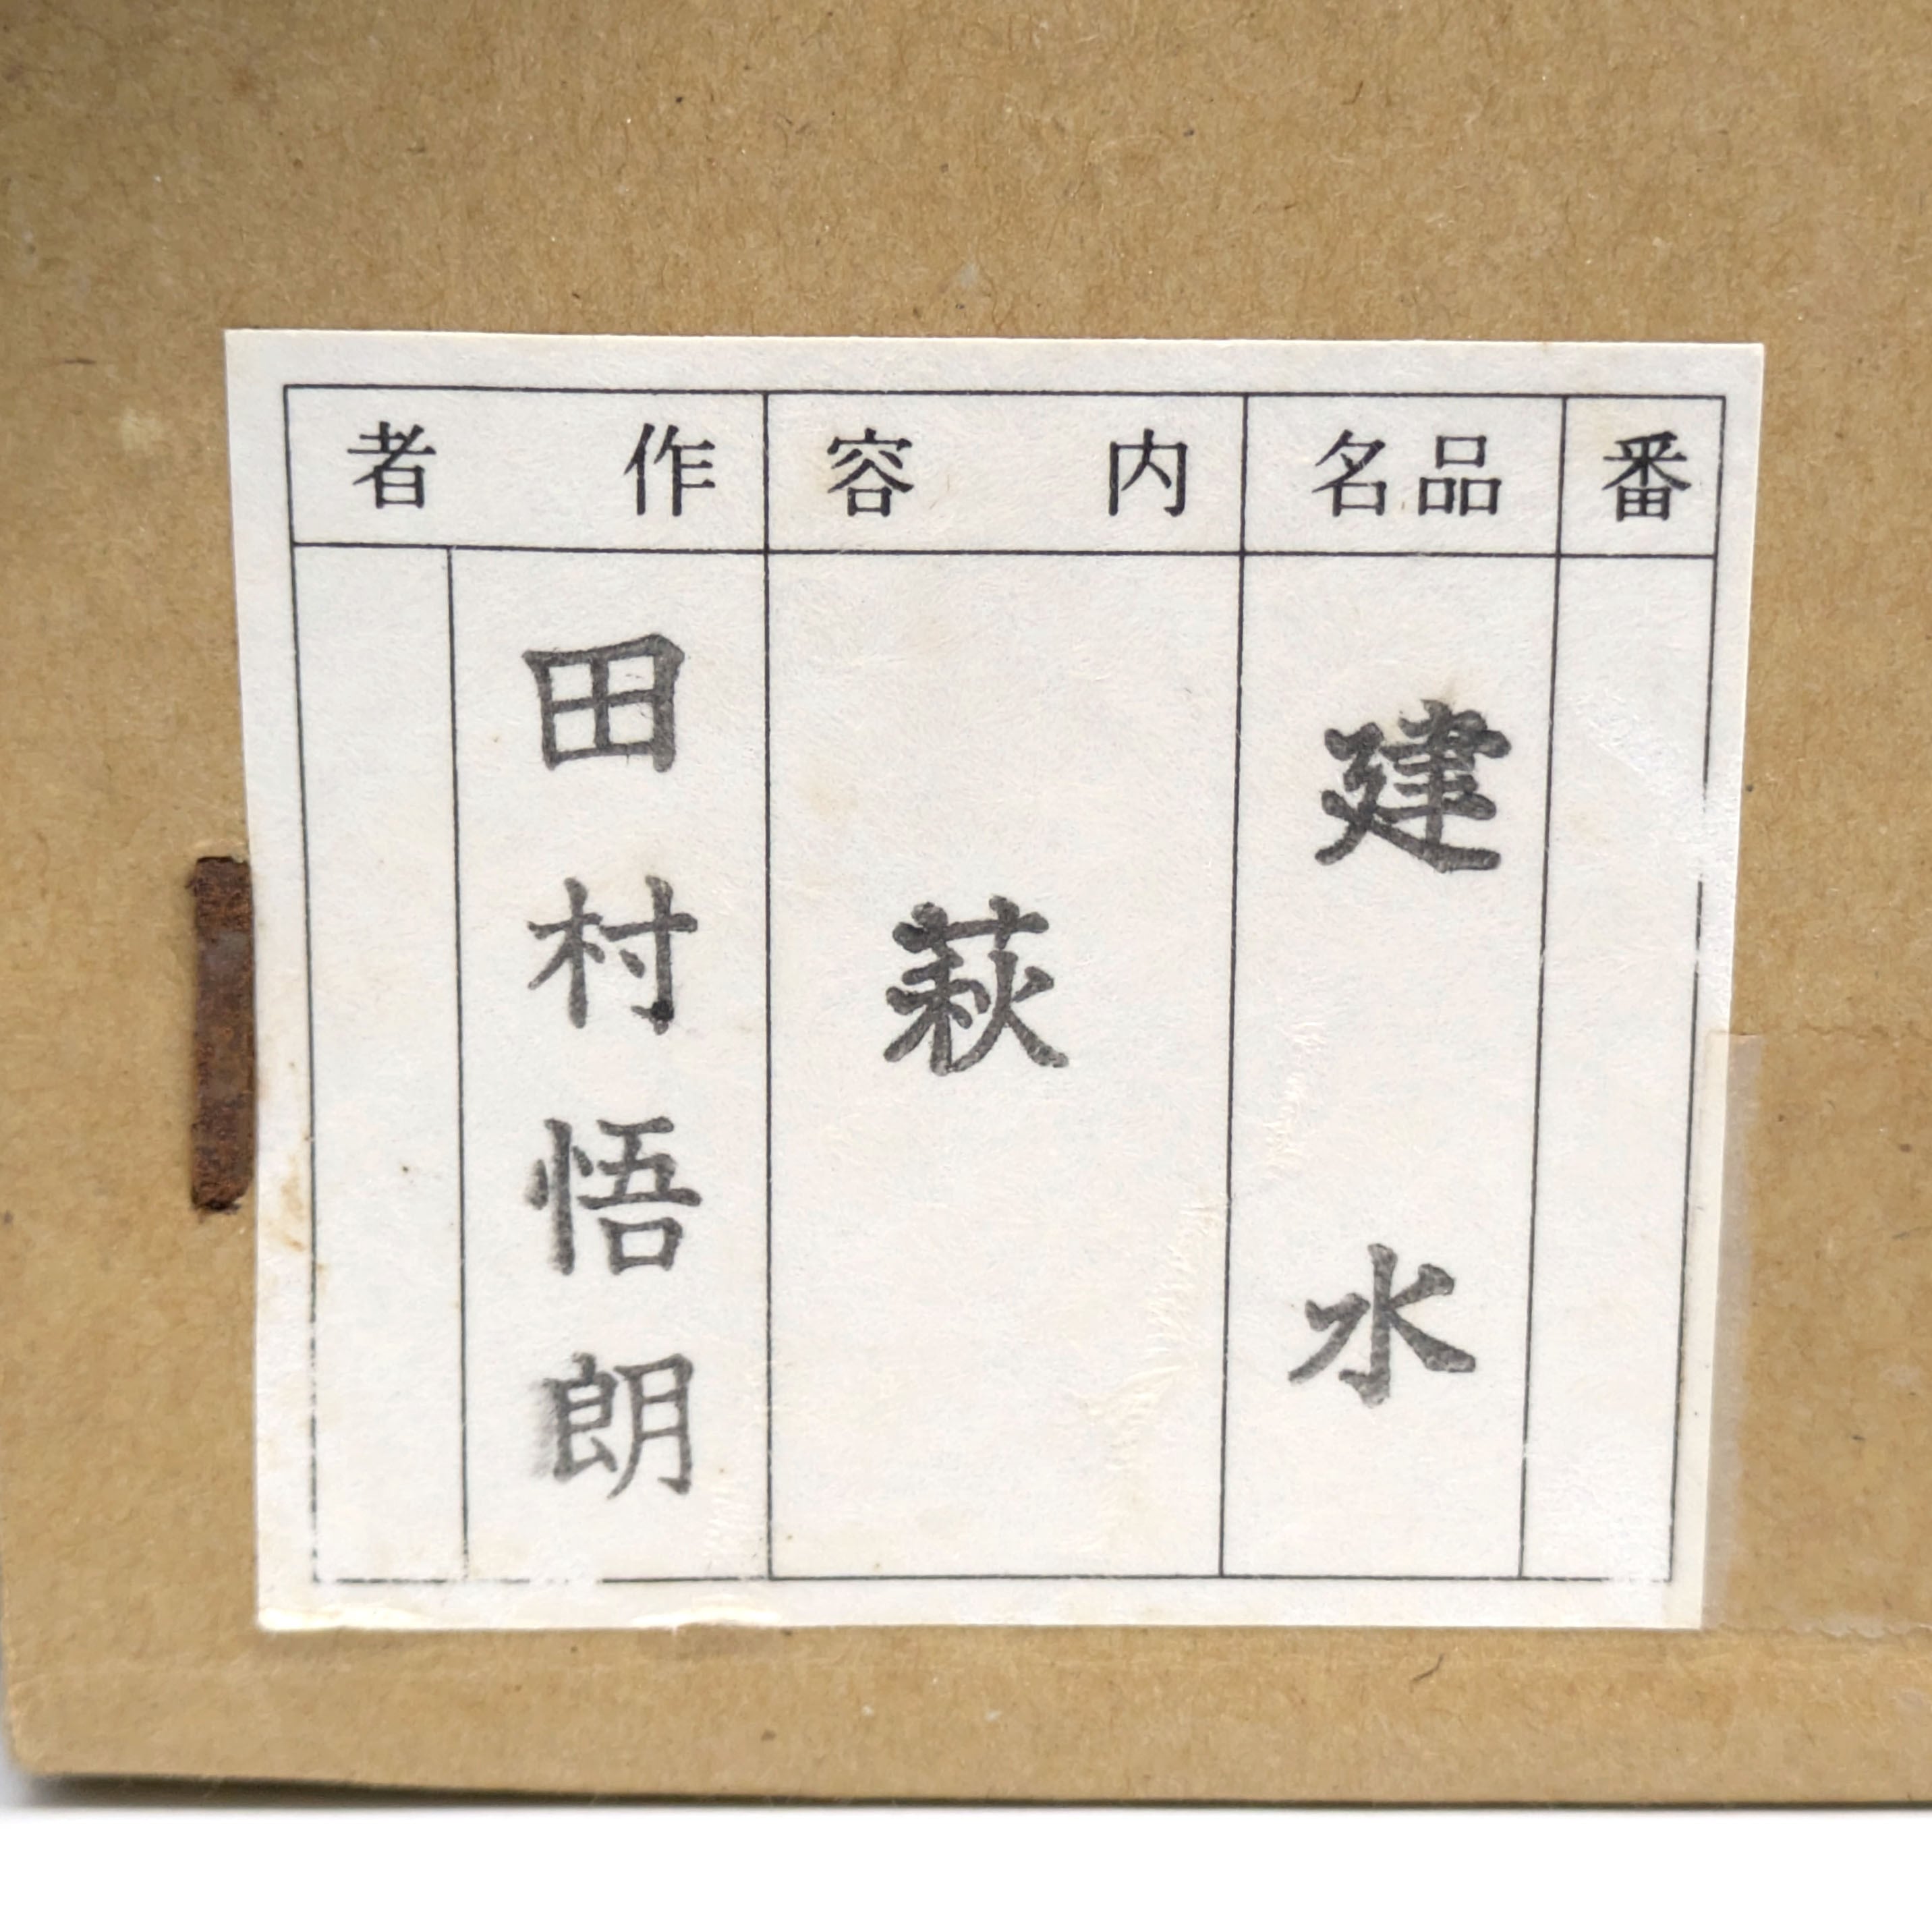 番
品名
内容
作者
建水
萩
田村悟朗